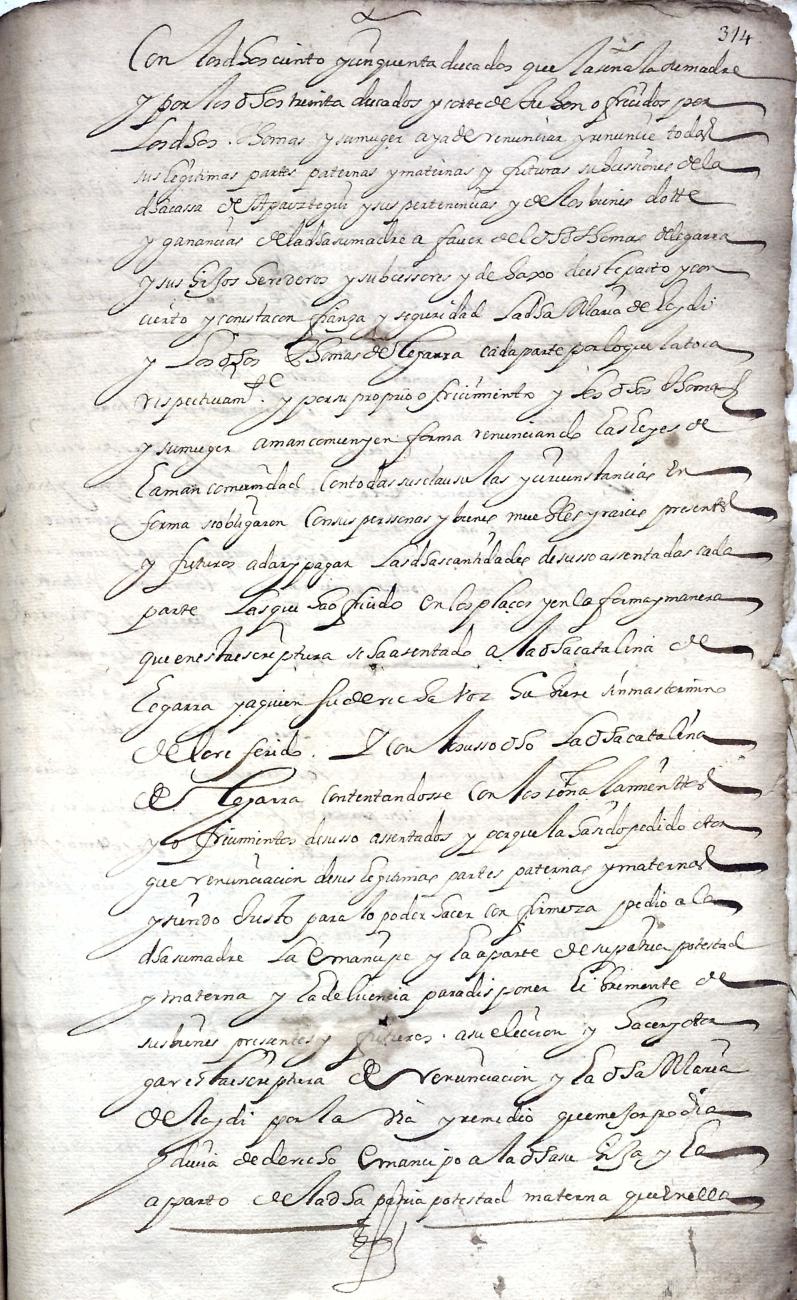 314
Con los dhos ciento y cinquenta ducados que la señala su madre
y por los dhos treinta ducados y corte de Jubon ofrecidos por
Los dhos. Thomas y su muger aya de renunciar y renuncie todas
sus legitimas partes paternas y maternas y futuras subcessiones de la
dha cassa de Apaeztegui y sus pertenencias y de los bienes dotte
y ganancias de la dha su madre a favor del dho Thomas de Legarra
y sus hijos herederos y subcessores y de baxo de este pacto y con
cierto y con tacon fianza y seguridad La dha Maria de
y Los dhos Thomas de Legarra cada parte por lo que la toca
respectivamte. y por su proprio ofrecimiento y los dhos Thomas
y su muger a mancomun y en forma renunciando las leyes de
La mancomunidad Con todas sus clausulas y circunstancias En
forma se obligaron Con sus perssonas y bienes muebles y raices presentes
y futuros a dar y pagar Las dhas cantidades de susso assentadas cada
parte Las que ha ofrecido en los plaços y en la forma y manera
que en esta escreptura se ha asentado a la dha Catalina de
Legarra y a quien su derecho y voz hubiere sin mas termino
de lo referido. Y con lo susso dho La dha Catalina
de Legarra contentandosse con los señalamientos
y ofrecimientos de susso assentados y porque la han pedido otor
gue renunciacion de sus legitimas partes paternas y maternas
y siendo Justo para lo poder hacer con firmeza pedio a la
dha su madre La emancipe y la aparte de su patria potestad
y materna y La de licencia para disponer libremente de
sus bienes presentes y futuros. a su eleccion y hacer y otor
gar esta escreptura de renunciacion y La dha Maria
de por la via y remedio que mejor podia
y devia de derecho emancipo a la dha su hija y La
apparto de la dha patria potestad materna que en ella